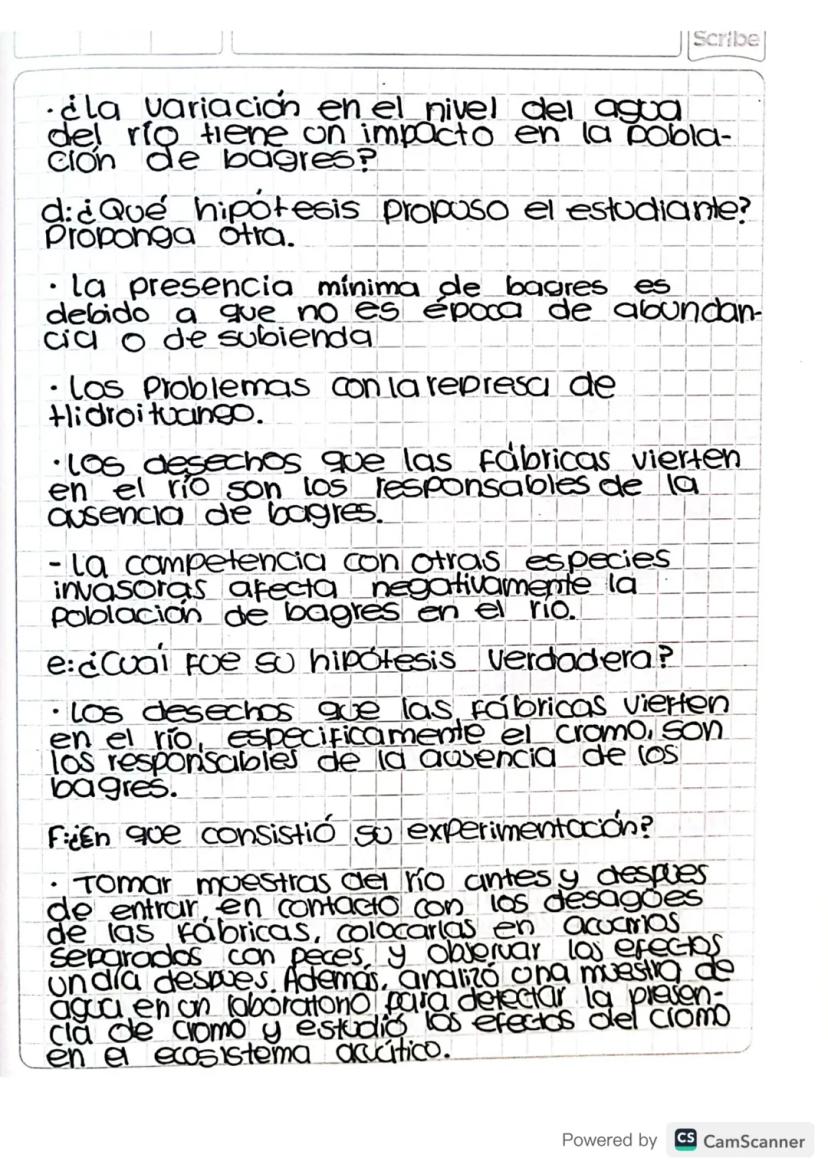 Scribe
· ¿La variación en el nivel del agua
del río tiene un impacto en la pobla-
ción de bagres?
d:¿Qué hipótesis propuso el estudiante?
Proponga otra.
· La presencia mínima de bagres es
debido a que no es época de abundan-
cia o de subienda
· Los Problemas con la represa de
Hidroituango.
· Los desechos que las fábricas vierten
en el río son los responsables de la
ausencia de bagres.
- La competencia con otras especies
invasoras afecta negativamente la
población de bagres en el río.
e:¿Cuál fue su hipótesis verdadera?
· Los desechos que las fábricas vierten
en el río, específicamente el cromo, son
los responsables de la ausencia de los
bagres.
F:¿En que consistió su experimentación?
· Tomar muestras del río antes y despues
de entrar, en contacto con los desagões
de las fábricas, colocarlas en acuarios
separados con peces, y observar los efectos
un día despues. Además, analizó una muestra de
agua en un laboratorio para detectar la presen-
cia de cromo y estudió los efectos del cromo
en el ecosistema acuítico.
Powered by CS CamScanner